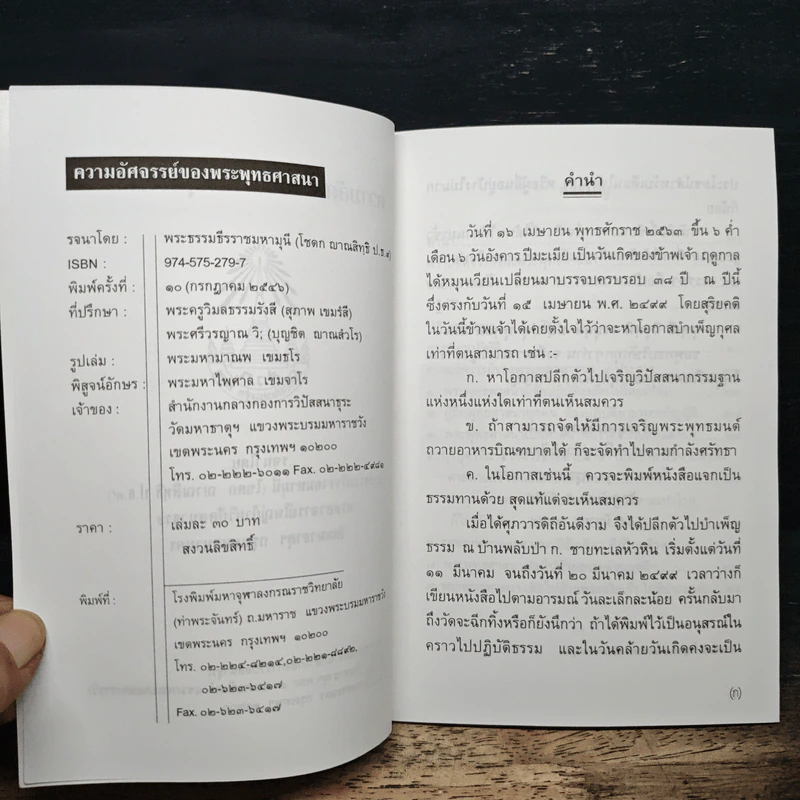 ความอัศจรรย์ของพระพุทธศาสนา
รจนาโดย : พระธรรมธีรราชมหามุนี (โชดก ญาณสิทฺธิ ป.ธ.๙)
ISBN : 974-575-279-7
พิมพ์ครั้งที่ : ๑๐ (กรกฎาคม ๒๕๔๖)
ที่ปรึกษา : พระครูวิมลธรรมรังสี (สุภาพ เขมรํสี)
พระศรีวรญาณ วิ; (บุญชิต ญาณสํวโร)
รูปเล่ม : พระมหามาณพ เขมธโร
พิสูจน์อักษร : พระมหาไพศาล เขมจาโร
เจ้าของ : สำนักงานกลางกองการวิปัสสนาธุระ
วัดมหาธาตุฯ แขวงพระบรมมหาราชวัง
เขตพระนคร กรุงเทพฯ ๑๐๒๐๐
โทร. ๐๒-๒๒๒-๖๐๑๑ Fax. ๐๒-๒๒๒-๔๙๘๑
ราคา : เล่มละ ๓๐ บาท
สงวนลิขสิทธิ์
พิมพ์ที่ : โรงพิมพ์มหาจุฬาลงกรณราชวิทยาลัย
(ท่าพระจันทร์) ถ.มหาราช แขวงพระบรมมหาราชวัง
เขตพระนคร กรุงเทพฯ ๑๐๒๐๐
โทร. ๐๒-๒๒๔-๘๒๑๔,๐๒-๒๒๑-๘๘๙๒,
๐๒-๖๒๓-๖๔๑๗
Fax. ๐๒-๖๒๓-๖๔๑๗
คำนำ
วันที่ ๑๖ เมษายน พุทธศักราช ๒๕๖๓ ขึ้น ๖ ค่ำ
เดือน ๖ วันอังคาร ปีมะเมีย เป็นวันเกิดของข้าพเจ้า ฤดูกาล
ได้หมุนเวียนเปลี่ยนมาบรรจบครบรอบ ๓๘ ปี ณ ปีนี้
ซึ่งตรงกับวันที่ ๑๕ เมษายน พ.ศ. ๒๔๙๙ โดยสุริยคติ
ในวันนี้ข้าพเจ้าได้เคยตั้งใจไว้ว่าจะหาโอกาสบำเพ็ญกุศล
เท่าที่ตนสามารถ เช่น :-
ก. หาโอกาสปลีกตัวไปเจริญวิปัสสนากรรมฐาน
แห่งหนึ่งแห่งใดเท่าที่ตนเห็นสมควร
ข. ถ้าสามารถจัดให้มีการเจริญพระพุทธมนต์
ถวายอาหารบิณฑบาตได้ ก็จะจัดทำไปตามกำลังศรัทธา
ค. ในโอกาสเช่นนี้ ควรจะพิมพ์หนังสือแจกเป็น
ธรรมทานด้วย สุดแท้แต่จะเห็นสมควร
เมื่อได้ศุภวารดิถีอันดีงาม จึงได้ปลีกตัวไปบำเพ็ญ
ธรรม ณ บ้านพลับป่า ก. ชายทะเลหัวหิน เริ่มตั้งแต่วันที่
๑๑ มีนาคม จนถึงวันที่ ๒๐ มีนาคม ๒๔๙๙ เวลาว่างก็
เขียนหนังสือไปตามอารมณ์ วันละเล็กละน้อย ครั้นกลับมา
ถึงวัดจะฉีกทิ้งหรือก็ยังนึกว่า ถ้าได้พิมพ์ไว้เป็นอนุสรณ์ใน
คราวไปปฏิบัติธรรม และในวันคล้ายวันเกิดคงจะเป็น
(ก)